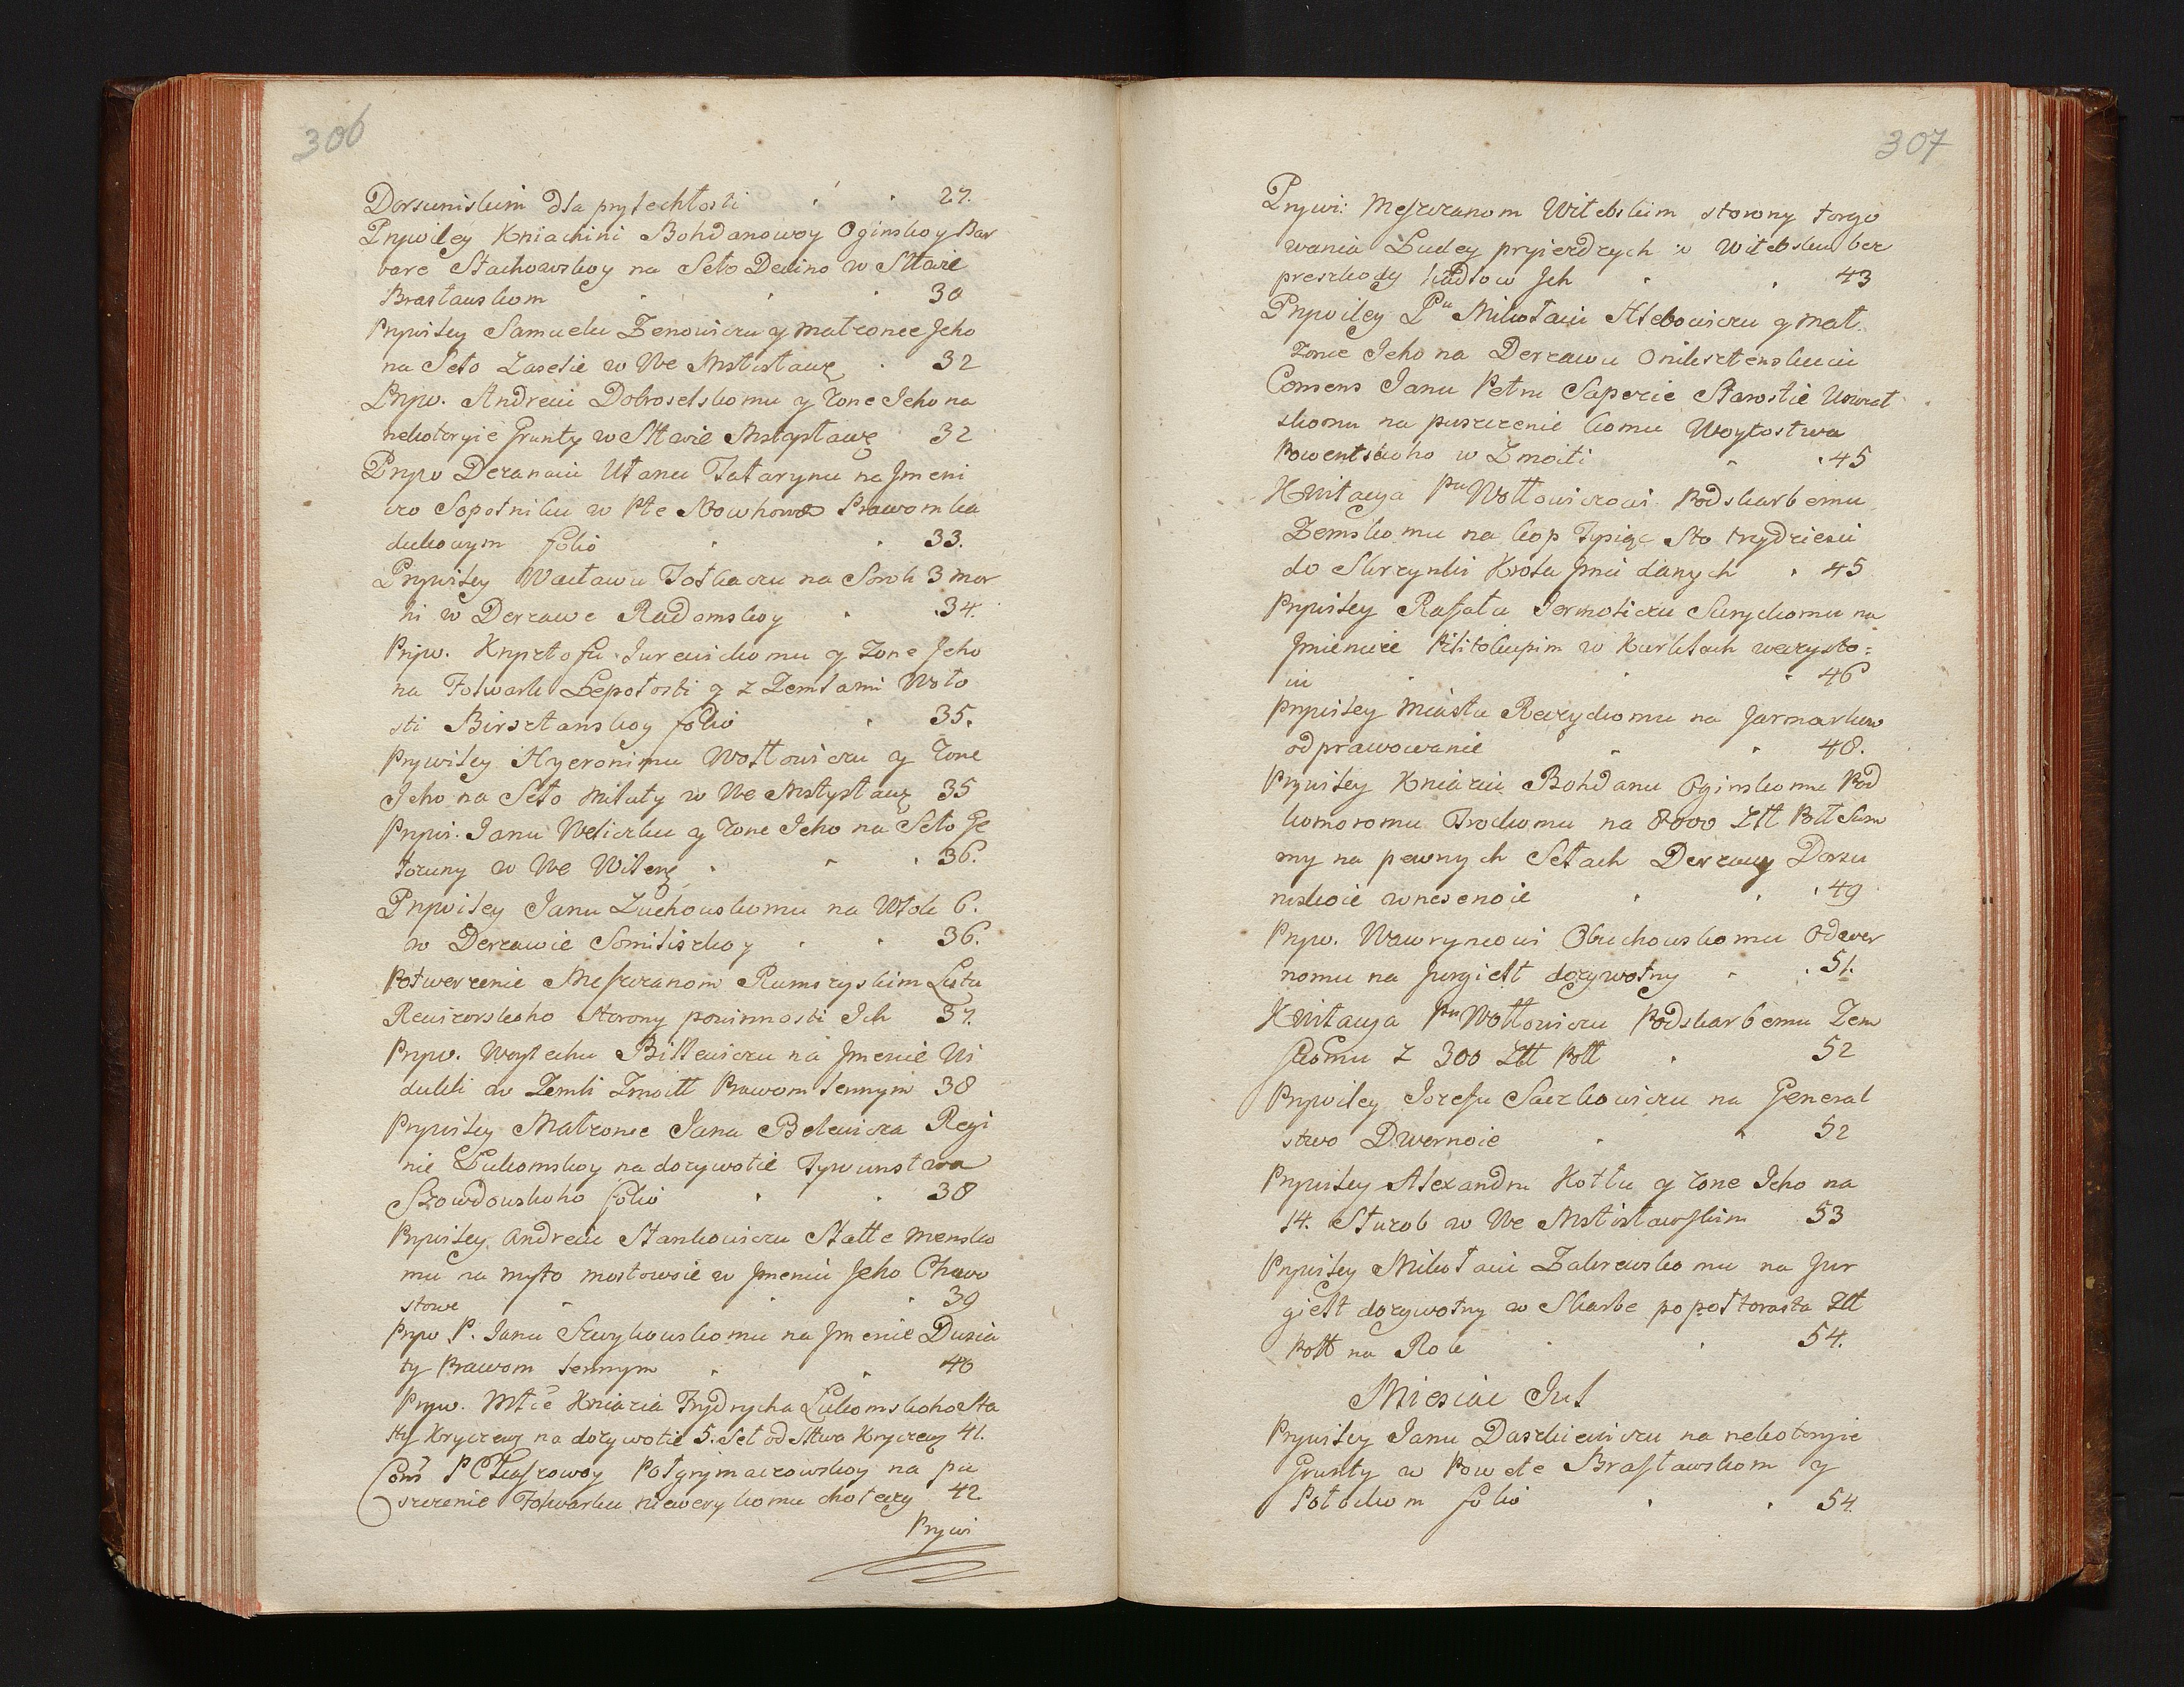 306
Dorsuniskim dla prylechłosti 27.
Prywiley Kniachini Bohdanowoy Oginskoy Bar
bare Stachowskoy na Seło Dedino w Sttwie
Brasławskom 30
Prywiley Samuelu Zenowiczu y Małżonce Jeho
na Seło Zaselie w We Mstisławę 32
Pryw. Andreiu Dobroselskomu y żone Jeho na
nekotoryie Grunty w Sttwie Mstysławę 32
Pryw Derznaiu Ułanu Tatarynu na Jmeni
czo Sopotniku w Pte Prawom ka
dukowym folio 33.
Prywiley Wacławu Tołkaczu na Smoli 3 mor
hi w Derzawe Radomskoy 34.
Pryw. Krysztofu Jurewickomu y żone Jeho
na Folwark Lepołoski y z Zemlami Woło
sti Birsztanskoy folio 35.
Prywiley Hyeronimu Wołłowiczu y żone
Jeho na Seło Miluty w We Mstysławę 35
Prywi. Janu Weliczku y żone Jeho na Seło Je
toruny w We Wilenę 36.
Prywiley Janu Zuchowskomu na Włok 6.
w Derzawie Somiliszkoy 36.
Potwerzenie Meszczanom Rumszyskim Listu
Rewizorskoho storony powinnosti Ich 37.
Pryw. Woytechu Billewiczu na Jmenie Wi
dukli w Zemli Zmoitt Prawom lennym 38
Prywiley Małżonce Jana Belewicza Regi
nie Łukomskoy na dożywotie Tywunstwa
Szowdowskoho folio 38
Prywiley Andreiu Stankowiczu Statte Mensko
mu na myto mostowoie w Jmeniu Jeho Chowo
stowe 39
Pryw P. Janu Szwykowskomu na Jmenie Dusia
ty Prawom lennym 40
Pryw. Młce Kniazia Frydrycha Łukomskoho Sta
sty Kryczewę na dożywotie 5. Sel od Sttwa Kryczewę 41.
Cons P Połgrymaczowskoy na pu
szczenie Folwarku komu choteczy 42
Prywi
307
Prywi: Meszczanom Witebskim storony torgo
wania Ludey pryiezdzych w Witebsku bez
preszkody hadłow Jch 43
Prywiley Pu Mikołaiu Hlebowiczu y Mał
żonce Jeho na Derzawu Oniksztenskuiu
Consens Janu Petru Sapezie Starostie Uswiat
skomu na puszczenie komu Woytostwa
Powentskoho w Zmoiti 45
Kwitacya Pu Wołłowiczowi Podskarbemu
Zemskomu na kop Tysiąc Sto trydziesii
do Skrzynki Krola Jmci danych 45
Prywiley Rafału Jermoliczu Suryckomu na
Jmienicze w Kurklach weczysto-
iu 46
Prywiley Miastu Reczyckomu na Jarmarkow
odprawowanie 48.
Prywiley Kniaziu Bohdanu Oginskomu Pod
komoromu Trockomu na 8000 Ztt Poll Sum
my na pewnych Sełach Derzawy Dorsu
niskoie wnesenoie 49
Pryw. Wawryncowi Obuchowskomu Odwer
nomu na Jurgiełt dożywotny 51.
Kwitacya Pu Wołłowiczu Podskarbemu Zem
skomu z 300 Ztt Poll 52
Prywiley Jozefu Saczkowiczu na General
stwo Dwornoie 52
Prywiley Alexandru Kotłu y żone Jeho na
14. Słuzob w We Mstisławskim 53
Prywiley Mikołaiu Zakrewskomu na Jur
giełt dożywotny w Skarbe po połtorasta Ztt
Poll na Rok 54.
Miesiac Jul
Prywiley Janu Daszkiewiczu na nekotoryie
Grunty w Powete Brasławskom y
Połockom folio 54